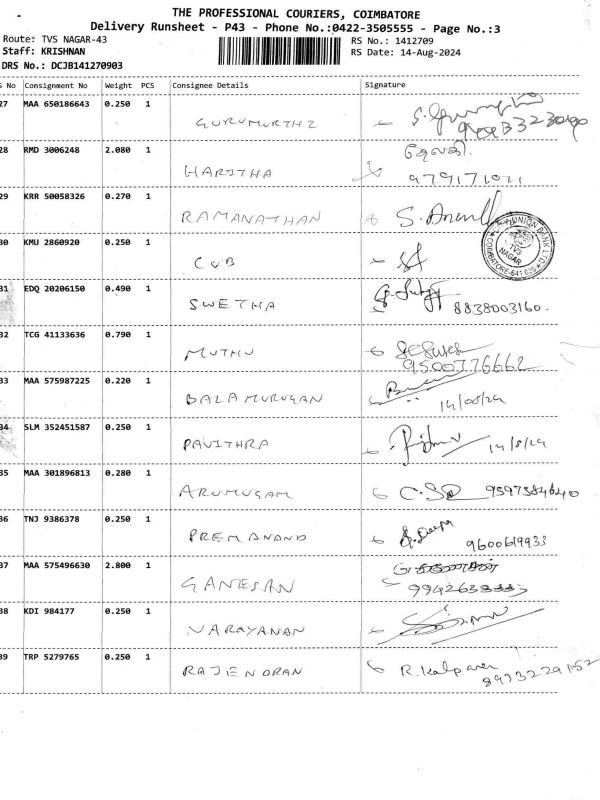 THE PROFESSIONAL COURIERS, COIMBATORE
Delivery Runsheet - P43 - Phone No.:0422-3505555 - Page No.:3
Route: TVS NAGAR-43
RS No.: 1412709
Staff: KRISHNAN
RS Date: 14-Aug-2024
DRS No.: DCJB141270903
S No Consignment No Weight PCS Consignee Details Signature
27 MAA 650186643 0.250 1
GURUMURTHI
28 RMD 3006248 2.080 1
HARITHA
9791171021
29 KRR 50058326 0.270 1
RAMANATHAN S. Anand
30 KMU 2860920 0.250 1
CUB
CITY UNION BANK LTD.
TVS NAGAR
COIMBATORE-641 025
31 EDQ 20206150 0.490 1
SWETHA 8838003160.
32 TCG 41133636 0.790 1
MUTHU
9500376662
33 MAA 575987225 0.220 1
BALAMURUGAN 14/08/24
34 SLM 352451587 0.250 1
PAVITHRA 14/8/24
35 MAA 301896813 0.280 1
ARUMUGAM 9597584640
36 TNJ 9386378 0.250 1
PREMANAND 9600619933
37 MAA 575496630 2.800 1
GANESAN
38 KDI 984177 0.250 1
NARAYANAN
39 TRP 5279765 0.250 1
RAJENDRAN R. Kalpana